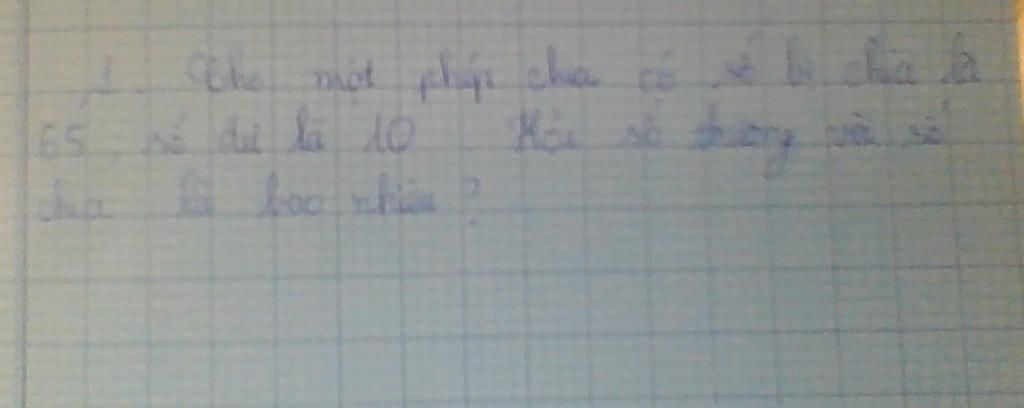 1. Cho một phép chia có số bị chia là
65, số dư là 10. Hỏi số thương và số
chia là bao nhiêu?